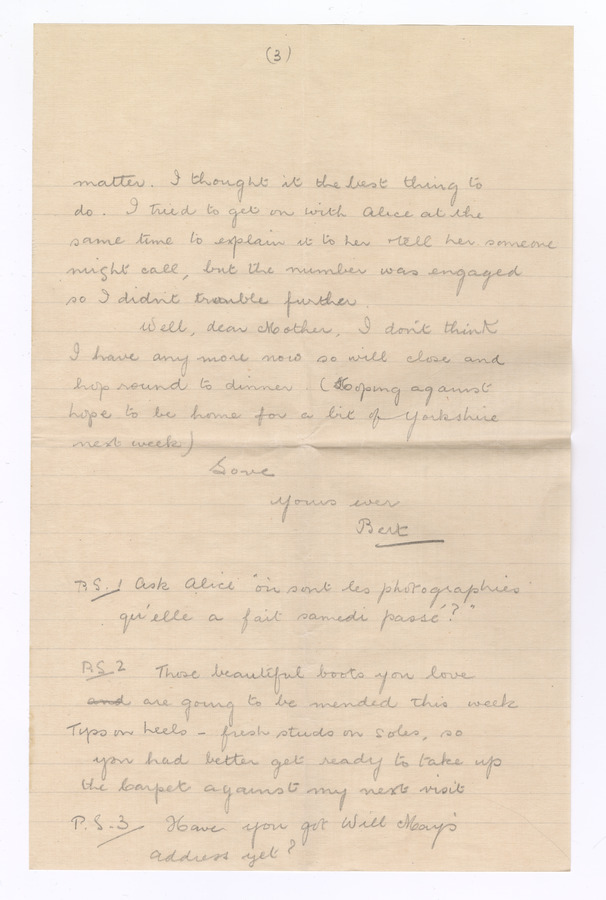 (3)
matter. I thought it the best thing to
do. I tried to get on with Alice at the
same time to explain it to her & tell her someone
might call, but the number was engaged
so I didn't trouble further.
Well, dear Mother, I don't think
I have any more now so will close and
hop round to dinner. (Hoping against
hope to be home for a bit of Yorkshire
next week)
Love
Yours ever
Bert
P.S. 1 Ask Alice "où sont les photographies
qu'elle a fait samedi passé?"
P.S. 2 Those beautiful boots you love
and are going to be mended this week
Tips on heels - fresh studs on soles, so
you had better get ready to take up
the carpet against my next visit
P.S. 3 Have you got Will May's
address yet?